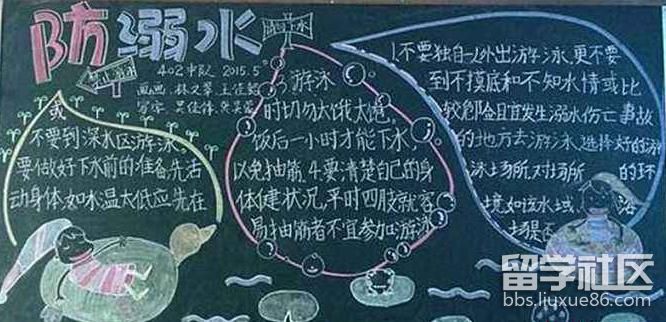 防溺水
402中队 2015.5
禁止游泳
或
不要到深水区游泳,
要做好下水前的准备先活
动身体,如水温太低应先在
游泳
时切勿太饿太饱,
饭后一小时才能下水,
以免抽筋,4.要清楚自己的身
体健状况,平时四肢就容
易抽筋者不宜参加游泳
1.不要独自一人外出游泳,更不要
到不摸底和不知水情或比
较危险且宜发生溺水伤亡事故
的地方去游泳,选择好的游
泳场所,对场所的环
境,如该水域 浴
场是否
留学社区
bbs.liuxue86.com